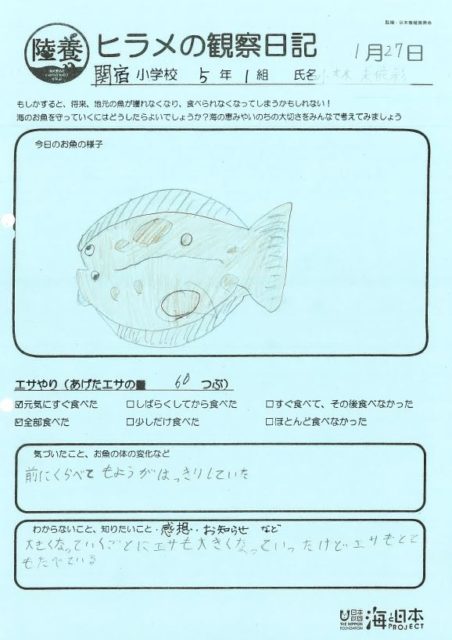 監修:日本養殖振興会
陸養
ヒラメの観察日記
1月27日
関宿小学校 5年1組 氏名
もしかすると、将来、地元の魚が獲れなくなり、食べられなくなってしまうかもしれない!
海のお魚を守っていくにはどうしたらよいでしょうか?海の恵みやいのちの大切さをみんなで考えてみましょう
今日のお魚の様子
エサやり(あげたエサの■ 60 つぶ)
☑元気にすぐ食べた □しばらくしてから食べた □すぐ食べて、その後食べなかった
☑全部食べた □少しだけ食べた □ほとんど食べなかった
気づいたこと、お魚の体の変化など
前にくらべてもようがはっきりしていた
わからないこと、知りたいこと・感想・お知らせ など
大きくなっていくごとにエサも大きくなっていったけどエサもとても
たべている
日本財団 THE NIPPON FOUNDATION 海と日本 PROJECT